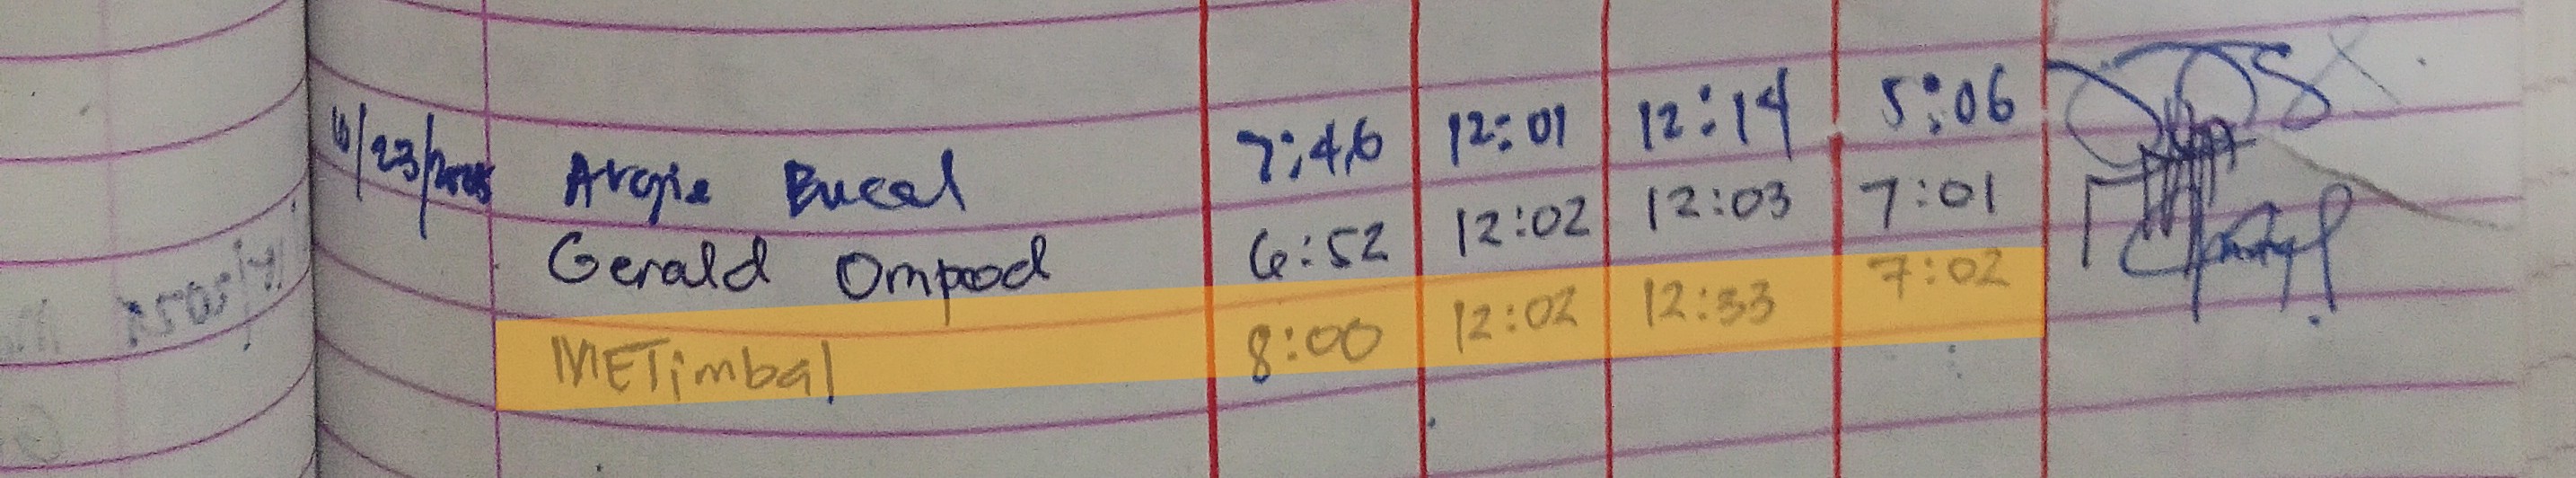 /23/2025 Argie Bucal 7:46 12:01 12:14 5:06
Gerald Ompod 6:52 12:02 12:03 7:01
METimbal 8:00 12:02 12:33 7:02